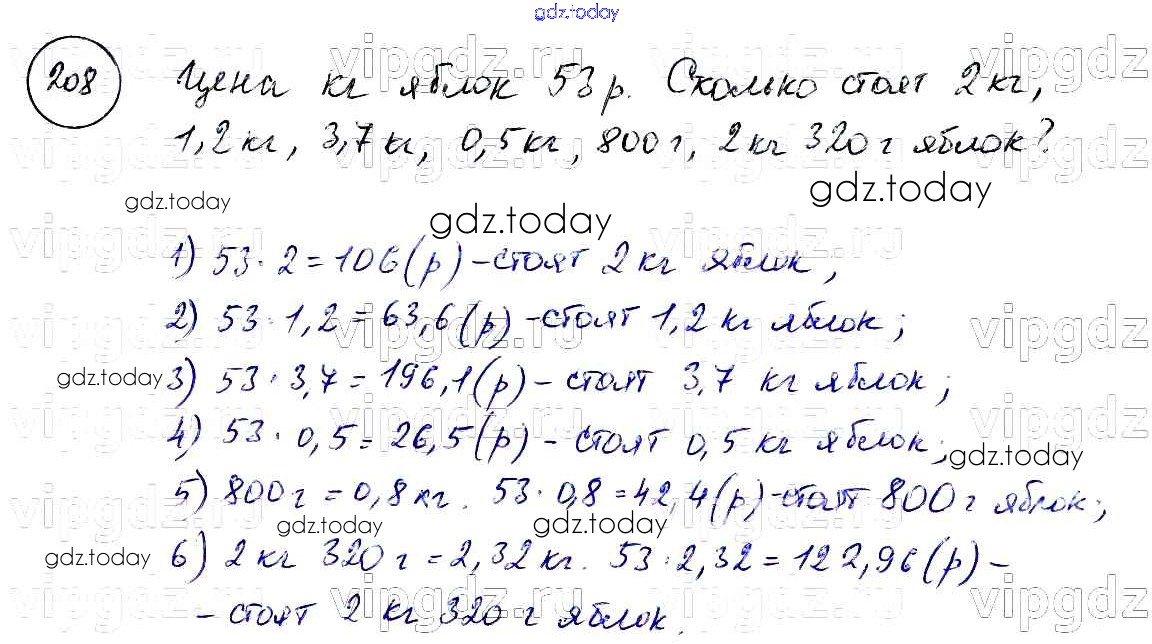 gdz.today
vipgdz.ru vipgdz.ru vipgdz.ru vipgdz
208 Цена кг яблок 53 р. Сколько стоят 2 кг,
1,2 кг, 3,7 кг, 0,5 кг, 800 г, 2 кг 320 г яблок?
vipgdz.ru vipgdz.ru vipgdz.ru vipgdz
gdz.today gdz.today gdz.today
vipgdz.ru vipgdz.ru vipgdz.ru vipgdz
1) 53 · 2 = 106 (р) – стоят 2 кг яблок,
2) 53 · 1,2 = 63,6 (р) – стоят 1,2 кг яблок;
vipgdz.ru vipgdz.ru vipgdz.ru vipgdz
gdz.today 3) 53 · 3,7 = 196,1 (р) – стоят 3,7 кг яблок;
vipgdz.ru vipgdz.ru vipgdz.ru vipgdz
4) 53 · 0,5 = 26,5 (р) – стоят 0,5 кг яблок;
gdz.today
5) 800 г = 0,8 кг. 53 · 0,8 = 42,4 (р) – стоят 800 г яблок;
vipgdz.ru vipgdz.ru vipgdz.ru vipgdz
gdz.today gdz.today
gdz.today 6) 2 кг 320 г = 2,32 кг. 53 · 2,32 = 122,96 (р) –
– стоят 2 кг 320 г яблок.
vipgdz.ru vipgdz.ru vipgdz.ru vipgdz